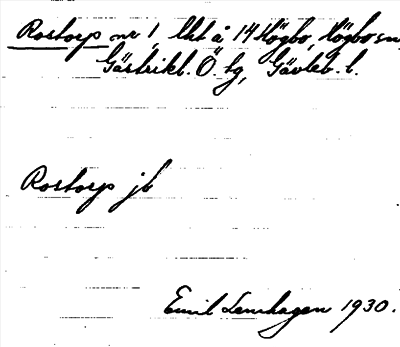 Rostorp nr 1, lht å 14 Högbo, Högbo sn,
Gästrikl. Ö. tg, Gävleb. l.
Rostorp jb
Emil Lennhagen 1930.